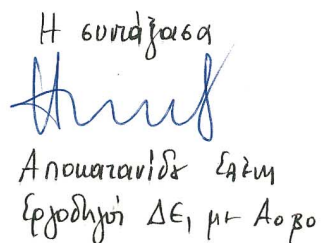 Η συντάξασα
Αποκατανίδε Ελένη
Εργοδηγός ΔΕ, με Α ο βο